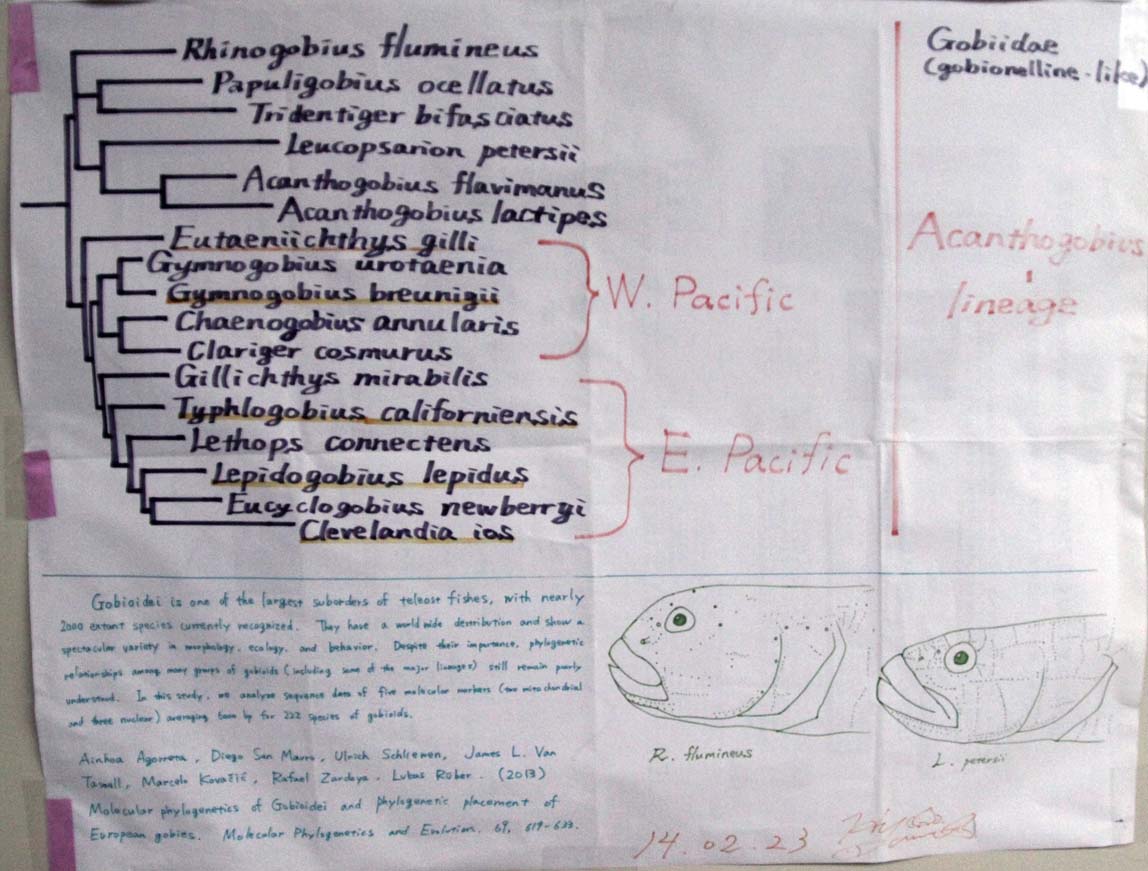 Rhinogobius flumineus
Papuligobius ocellatus
Tridentiger bifasciatus
Leucopsarion petersii
Acanthogobius flavimanus
Acanthogobius lactipes
Eutaeniichthys gilli
Gymnogobius urotaenia
Gymnogobius breunigii
Chaenogobius annularis
Clariger cosmurus
Gillichthys mirabilis
Typhlogobius californiensis
Lethops connectens
Lepidogobius lepidus
Eucyclogobius newberryi
Clevelandia ios
W. Pacific
E. Pacific
Gobiidae
(gobionelline-like)
Acanthogobius
lineage
Gobioidei is one of the largest suborders of teleost fishes, with nearly
2000 extant species currently recognized. They have a worldwide destribution and show a
spectacular variety in morphology, ecology, and behavior. Despite their importance, phylogenetic
relationships among many groups of gobioids (including some of the major lineages) still remain poorly
understood. In this study, we analyze sequence data of five molecular markers (two mitochondrial
and three nuclear) averaging bp for 222 species of gobioids.
Ainhoa Agorreta, Diego San Mauro, Ulrich Schliewen, James L. Van
Tassell, Marcelo Kovačić, Rafael Zardoya, Lukas Rüber. (2013)
Molecular phylogenetics of Gobioidei and phylogenetic placement of
European gobies. Molecular Phylogenetics and Evolution, 69, 619-633.
R. flumineus
L. petersii
14.02.23